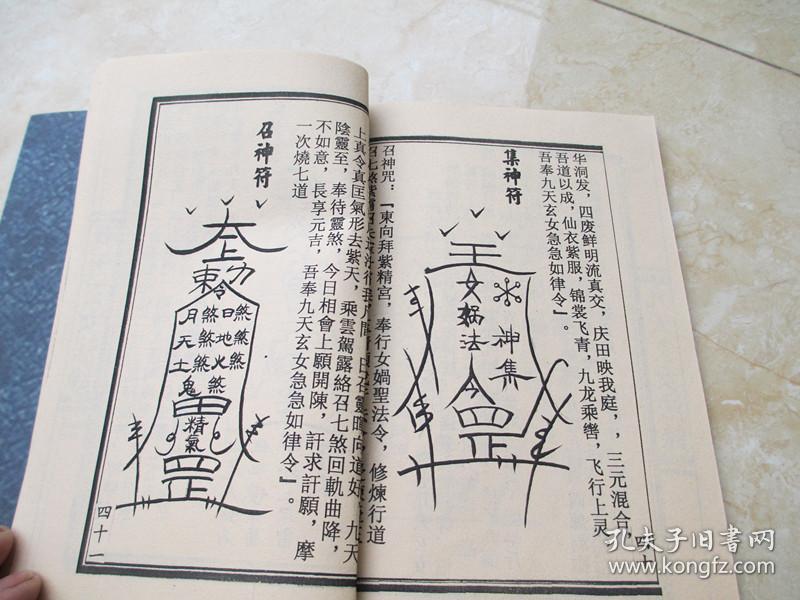 华洞发，四废鲜明流真交，庆田映我庭，，三元混合，
吾道以成，仙衣紫服，锦裳飞青，九龙乘辔，飞行上灵
吾奉九天玄女急急如律令』。
集神符
王
女媧法
神集
令
罡
召神咒：「東向拜紫精宮，奉行女媧聖法令，修煉行道
四十
上真令真匡氣形去紫天，乘雲駕露絡召七煞回軌曲降，
陰靈至，奉待靈煞，今日相會上願開陳，訐求訐願，摩
不如意，長享元吉，吾奉九天玄女急急如律令』。
一次燒七道
召神符
太上
敕令
煞煞煞煞
日地火煞
煞煞煞煞
月天土鬼
精氣
罡
四十一
孔夫子旧书网
www.kongfz.com